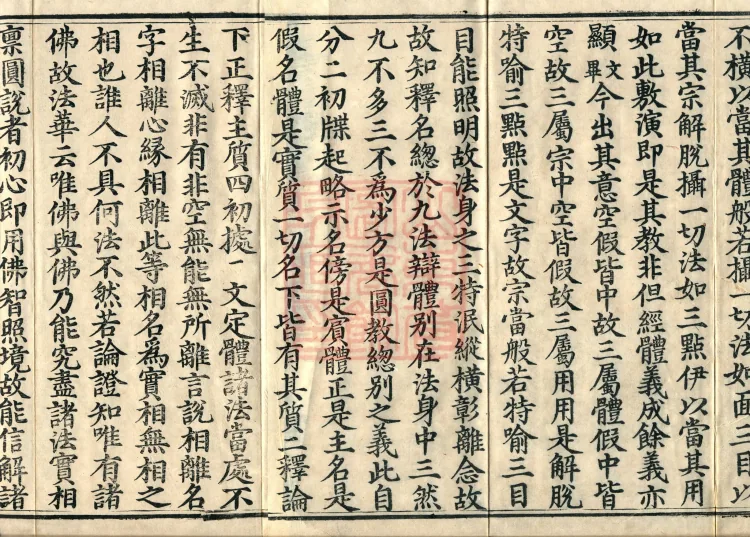 不橫以當其體般若攝一切法如面三目以
當其宗解脫攝一切法如三點伊以當其用
如此敷演即是其教非但經體義成餘義亦
顯文畢今出其意空假皆中故三屬體假中皆
空故三屬宗中空皆假故三屬用用是解脫
特喻三點點是文字故宗當般若特喻三目
目能照明故法身之三特泯縱橫彰離念故
故知釋名總於九法辯體別在法身中三然
九不多三不爲少方是圓教總別之義此自
分二初牒起略示名傍是賓體正是主名是
假名體是實質一切名下皆有其質二釋論
下正釋主質四初處一文定體諸法當處不
生不滅非有非空無能無所離言說相離名
字相離心緣相離此等相名爲實相無相之
相也誰人不具何法不然若論證知唯有諸
佛故法華云唯佛與佛乃能究盡諸法實相
稟圓說者初心即用佛智照境故能信解諸